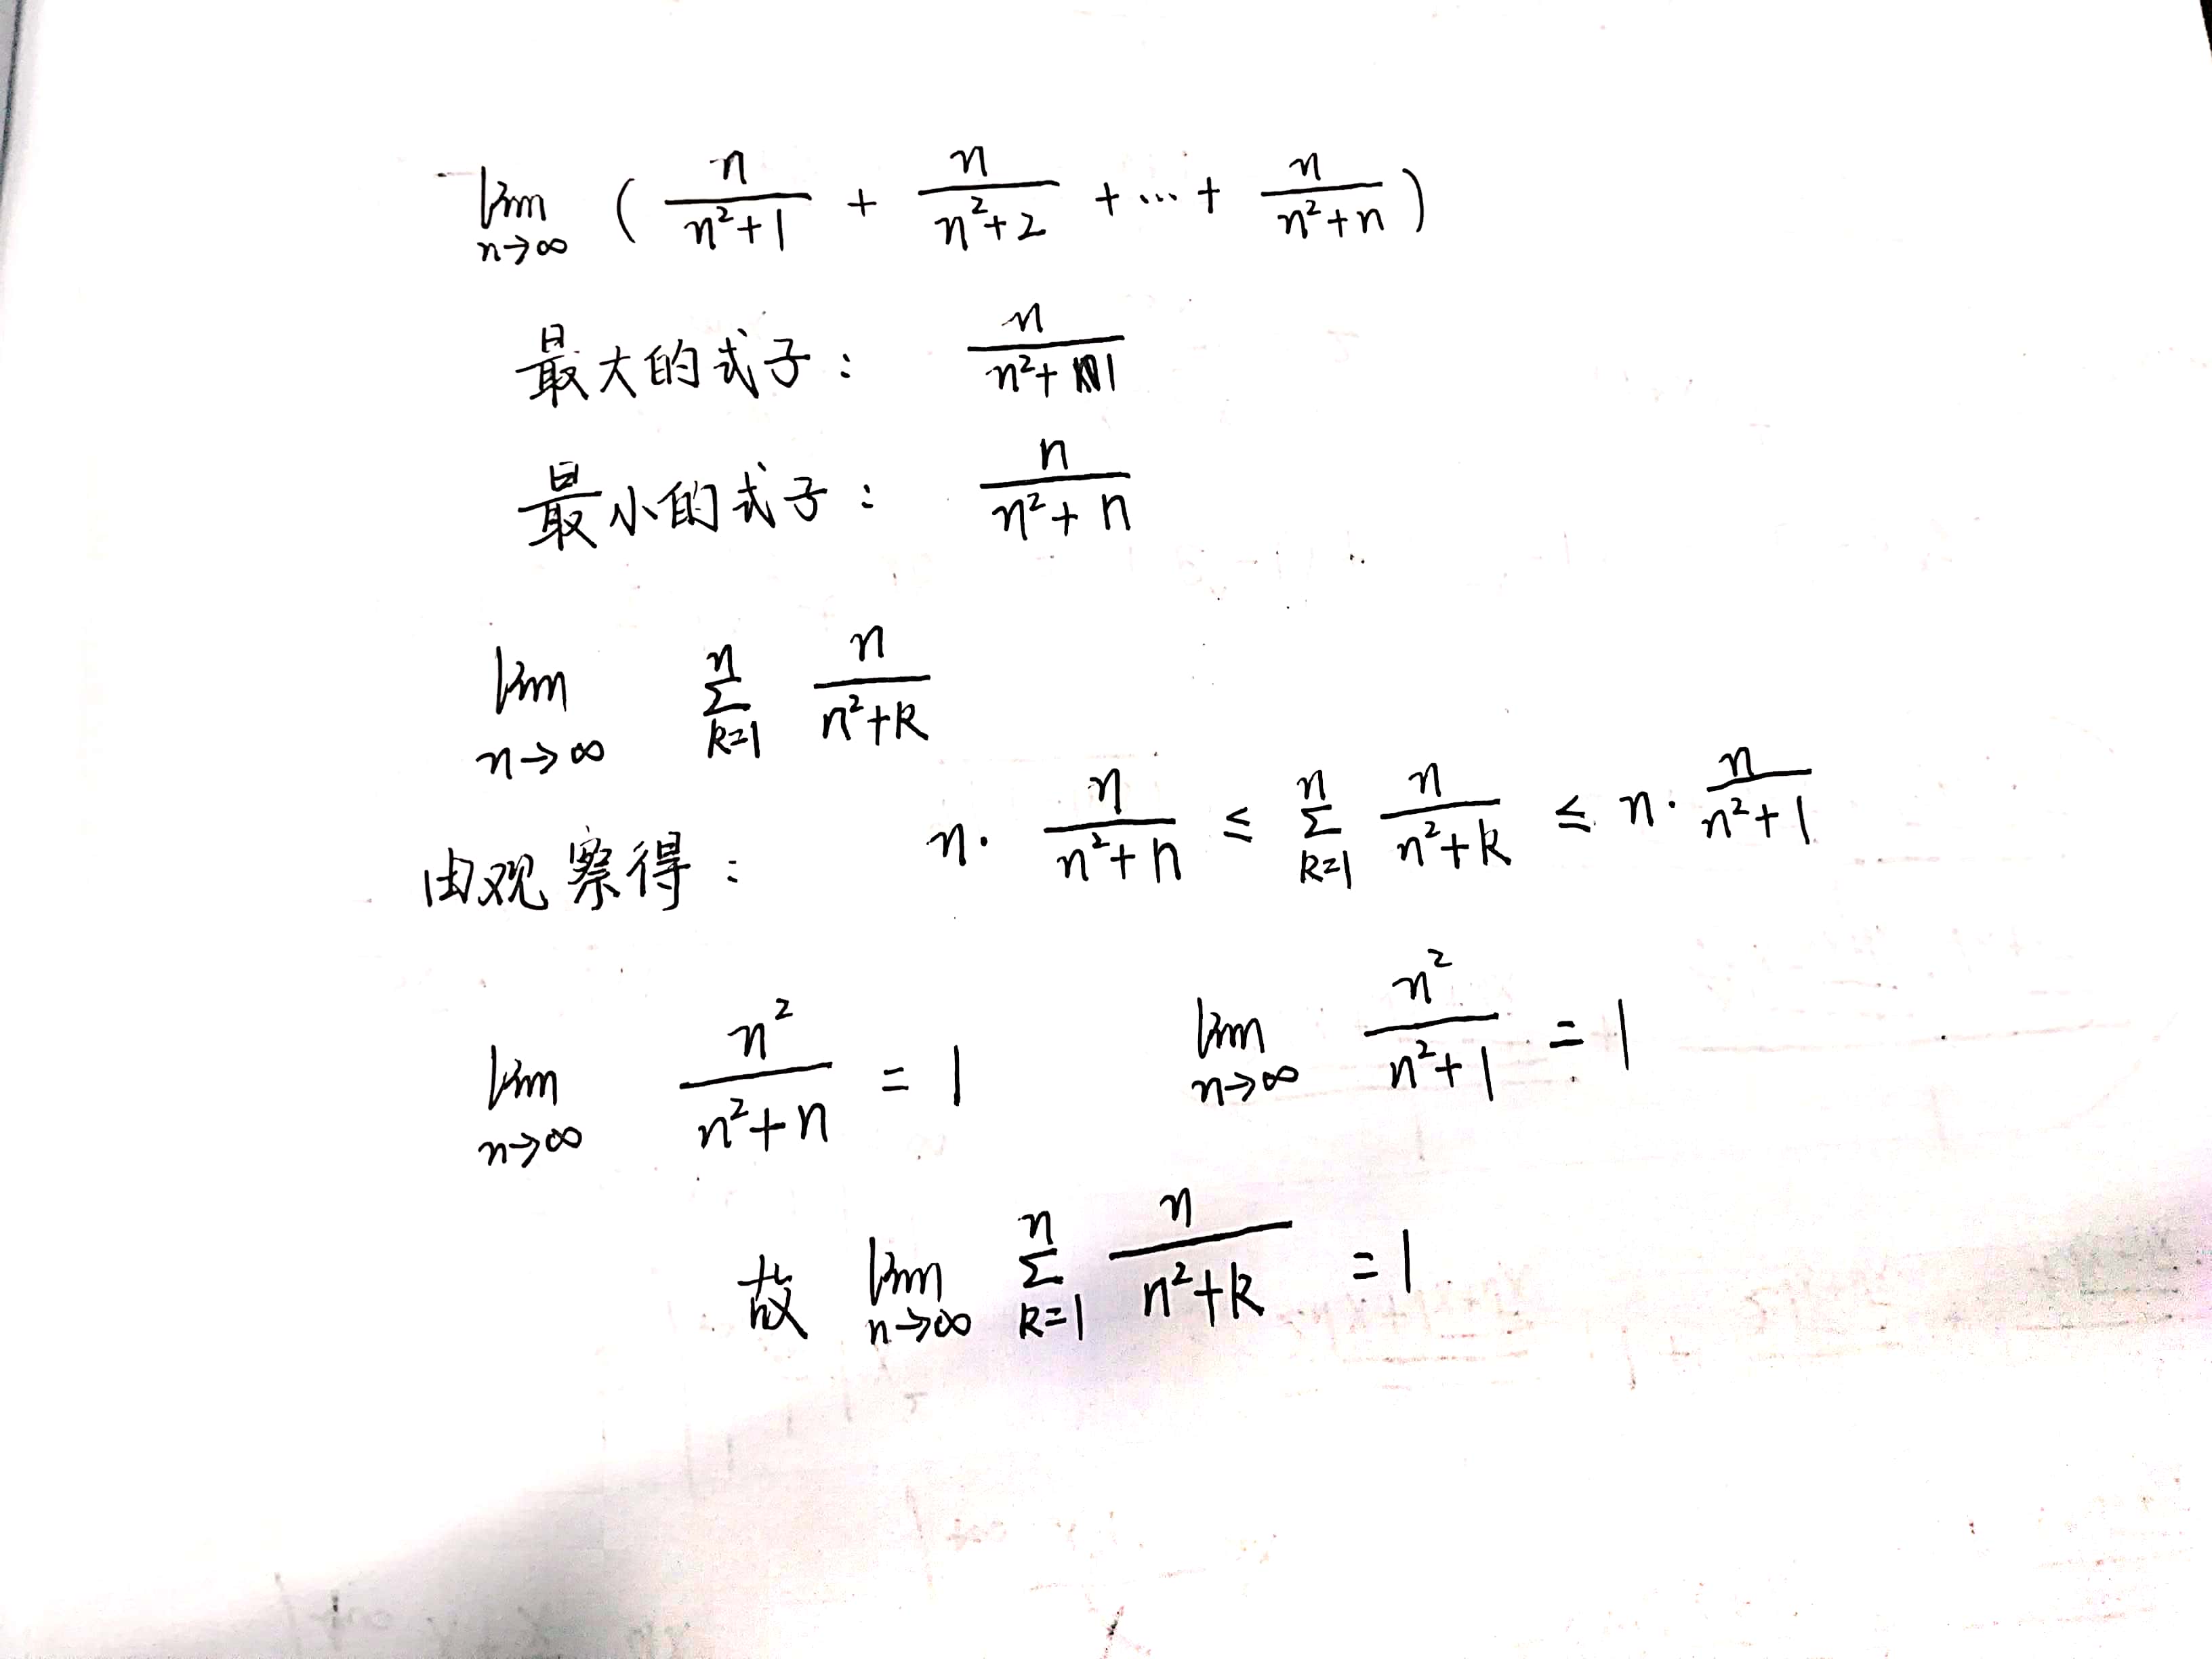 lim n→∞ ( n/(n²+1) + n/(n²+2) + ... + n/(n²+n) )
最大的式子: n/(n²+1)
最小的式子: n/(n²+n)
lim n→∞ Σ k=1 n n/(n²+k)
由观察得: n· n/(n²+n) ≤ Σ k=1 n n/(n²+k) ≤ n· n/(n²+1)
lim n→∞ n²/(n²+n) = 1 lim n→∞ n²/(n²+1) = 1
故 lim n→∞ Σ k=1 n n/(n²+k) = 1